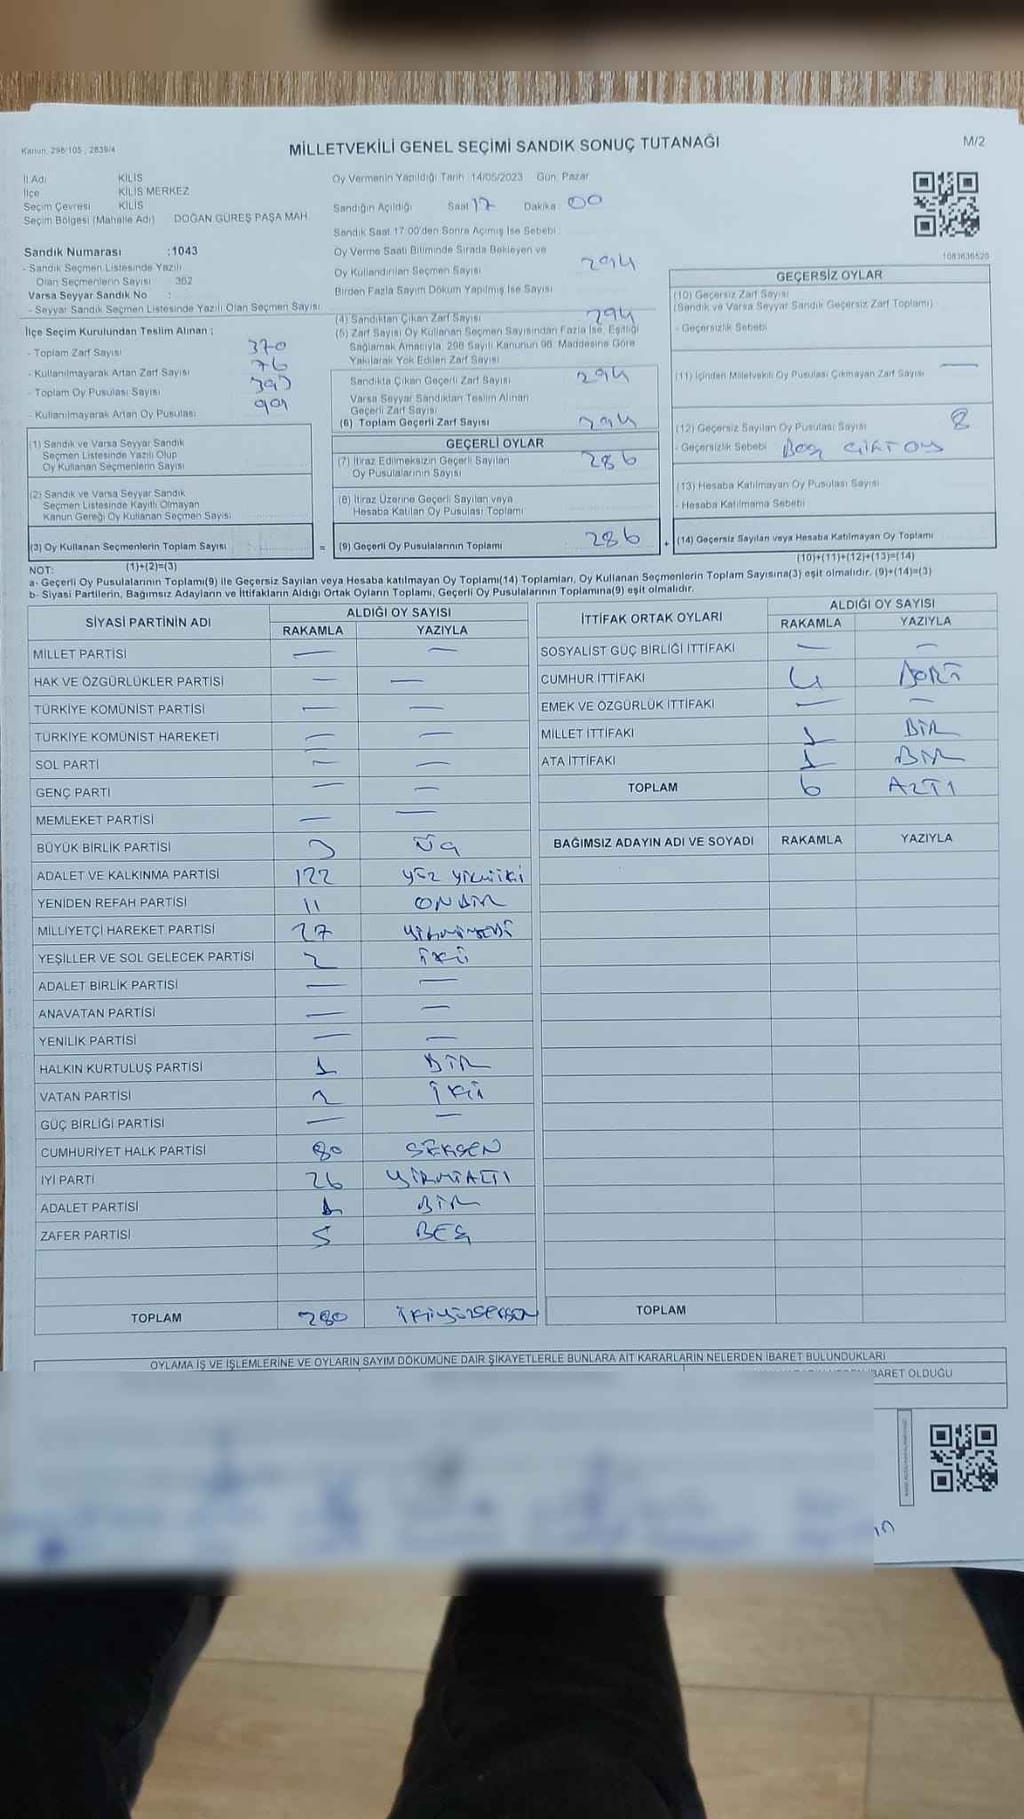 Kanun: 298/105 ; 2839/4
MİLLETVEKİLİ GENEL SEÇİMİ SANDIK SONUÇ TUTANAĞI
M/2
İl Adı KİLİS
İlçe KİLİS MERKEZ
Seçim Çevresi KİLİS
Seçim Bölgesi (Mahalle Adı) DOĞAN GÜREŞ PAŞA MAH.
Sandık Numarası :1043
- Sandık Seçmen Listesinde Yazılı
Olan Seçmenlerin Sayısı : 362
Varsa Seyyar Sandık No :
- Seyyar Sandık Seçmen Listesinde Yazılı Olan Seçmen Sayısı:
İlçe Seçim Kurulundan Teslim Alınan ;
- Toplam Zarf Sayısı 370
- Kullanılmayarak Artan Zarf Sayısı 76
- Toplam Oy Pusulası Sayısı
- Kullanılmayarak Artan Oy Pusulası
(1) Sandık ve Varsa Seyyar Sandık
Seçmen Listesinde Yazılı Olup
Oy Kullanan Seçmenlerin Sayısı
(2) Sandık ve Varsa Seyyar Sandık
Seçmen Listesinde Kayıtlı Olmayan
Kanun Gereği Oy Kullanan Seçmen Sayısı
(3) Oy Kullanan Seçmenlerin Toplam Sayısı
(1)+(2)=(3)
Oy Vermenin Yapıldığı Tarih: 14/05/2023 Gün: Pazar
Sandığın Açıldığı Saat 17 Dakika 00
Sandık Saat 17:00'den Sonra Açmış İse Sebebi :
Oy Verme Saati Bitiminde Sırada Bekleyen ve
Oy Kullandırılan Seçmen Sayısı 294
Birden Fazla Sayım Döküm Yapılmış İse Sayısı
(4) Sandıktan Çıkan Zarf Sayısı 294
(5) Zarf Sayısı Oy Kullanan Seçmen Sayısından Fazla İse, Eşitliği
Sağlamak Amacıyla, 298 Sayılı Kanunun 98. Maddesine Göre
Yakılarak Yok Edilen Zarf Sayısı
Sandıkta Çıkan Geçerli Zarf Sayısı 294
Varsa Seyyar Sandıktan Teslim Alınan
Geçerli Zarf Sayısı
(6) Toplam Geçerli Zarf Sayısı 294
GEÇERLİ OYLAR
(7) İtiraz Edilmeksizin Geçerli Sayılan 286
Oy Pusulalarının Sayısı
(8) İtiraz Üzerine Geçerli Sayılan veya
Hesaba Katılan Oy Pusulası Toplamı
= (9) Geçerli Oy Pusulalarının Toplamı 286 +
1081636520
GEÇERSİZ OYLAR
(10) Geçersiz Zarf Sayısı
(Sandık ve Varsa Seyyar Sandık Geçersiz Zarf Toplamı)
- Geçersizlik Sebebi
(11) İçinden Milletvekili Oy Pusulası Çıkmayan Zarf Sayısı —
(12) Geçersiz Sayılan Oy Pusulası Sayısı 8
- Geçersizlik Sebebi
(13) Hesaba Katılmayan Oy Pusulası Sayısı
- Hesaba Katılmama Sebebi
(14) Geçersiz Sayılan veya Hesaba Katılmayan Oy Toplamı
(10)+(11)+(12)+(13)=(14)
NOT:
a- Geçerli Oy Pusulalarının Toplamı(9) ile Geçersiz Sayılan veya Hesaba katılmayan Oy Toplamı(14) Toplamları, Oy Kullanan Seçmenlerin Toplam Sayısına(3) eşit olmalıdır. (9)+(14)=(3)
b- Siyasi Partilerin, Bağımsız Adayların ve İttifakların Aldığı Ortak Oyların Toplamı, Geçerli Oy Pusulalarının Toplamına(9) eşit olmalıdır.
SİYASİ PARTİNİN ADI ALDIĞI OY SAYISI
RAKAMLA YAZIYLA
MİLLET PARTİSİ — —
HAK VE ÖZGÜRLÜKLER PARTİSİ — —
TÜRKİYE KOMÜNİST PARTİSİ — —
TÜRKİYE KOMÜNİST HAREKETİ — —
SOL PARTİ — —
GENÇ PARTİ — —
MEMLEKET PARTİSİ — —
BÜYÜK BİRLİK PARTİSİ 3 ÜÇ
ADALET VE KALKINMA PARTİSİ 122 YÜZ YİRMİİKİ
YENİDEN REFAH PARTİSİ 11 ONBİR
MİLLİYETÇİ HAREKET PARTİSİ 27 YİRMİYEDİ
YEŞİLLER VE SOL GELECEK PARTİSİ 2 İKİ
ADALET BİRLİK PARTİSİ — —
ANAVATAN PARTİSİ — —
YENİLİK PARTİSİ — —
HALKIN KURTULUŞ PARTİSİ 1 BİR
VATAN PARTİSİ 2 İKİ
GÜÇ BİRLİĞİ PARTİSİ — —
CUMHURİYET HALK PARTİSİ 80 SEKSEN
İYİ PARTİ 26 YİRMİALTI
ADALET PARTİSİ 1 BİR
ZAFER PARTİSİ 5 BEŞ
TOPLAM 280 İKİYÜZSEKSEN
İTTİFAK ORTAK OYLARI ALDIĞI OY SAYISI
RAKAMLA YAZIYLA
SOSYALİST GÜÇ BİRLİĞİ İTTİFAKI — —
CUMHUR İTTİFAKI 4 DÖRT
EMEK VE ÖZGÜRLÜK İTTİFAKI — —
MİLLET İTTİFAKI 1 BİR
ATA İTTİFAKI 1 BİR
TOPLAM 6 ALTI
BAĞIMSIZ ADAYIN ADI VE SOYADI RAKAMLA YAZIYLA
TOPLAM
OYLAMA İŞ VE İŞLEMLERİNE VE OYLARIN SAYIM DÖKÜMÜNE DAİR ŞİKAYETLERLE BUNLARA AİT KARARLARIN NELERDEN İBARET BULUNDUKLARI
İBARET OLDUĞU